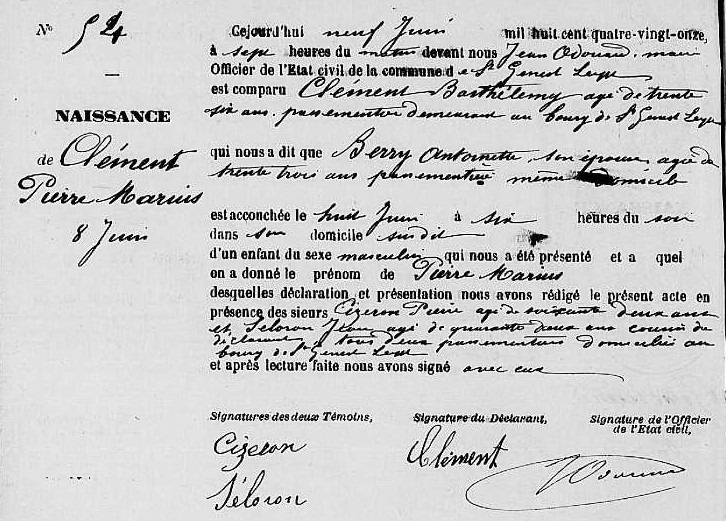 N° 52
NAISSANCE
de Clément
Pierre Marius
8 Juin
Cejourd'hui neuf Juin mil huit cent quatre-vingt-onze,
à sept heures du matin devant nous Jean Odouard, maire
Officier de l'Etat civil de la commune de St Genest Lerpt
est comparu Clément Barthélemy agé de trente
six ans, passementier demeurant au bourg de St Genest Lerpt
qui nous a dit que Berry Antoinette, son épouse agée de
trente trois ans passementière même domicile
est accouchée le huit Juin à six heures du soir
dans son domicile susdit
d'un enfant du sexe masculin qui nous a été présenté et a quel
on a donné le prénom de Pierre Marius
desquelles déclaration et présentation nous avons rédigé le présent acte en
présence des sieurs Cizeron Pierre agé de soixante deux ans
et Séloron Jean agé de quarante deux ans cousin du
déclarant, tous deux passementiers domiciliés au
bourg de St Genest Lerpt
et après lecture faite nous avons signé avec eux
Signatures des deux Témoins, Signature du Déclarant, Signature de l'Officier
de l'Etat civil,
Cizeron Clément
Séloron